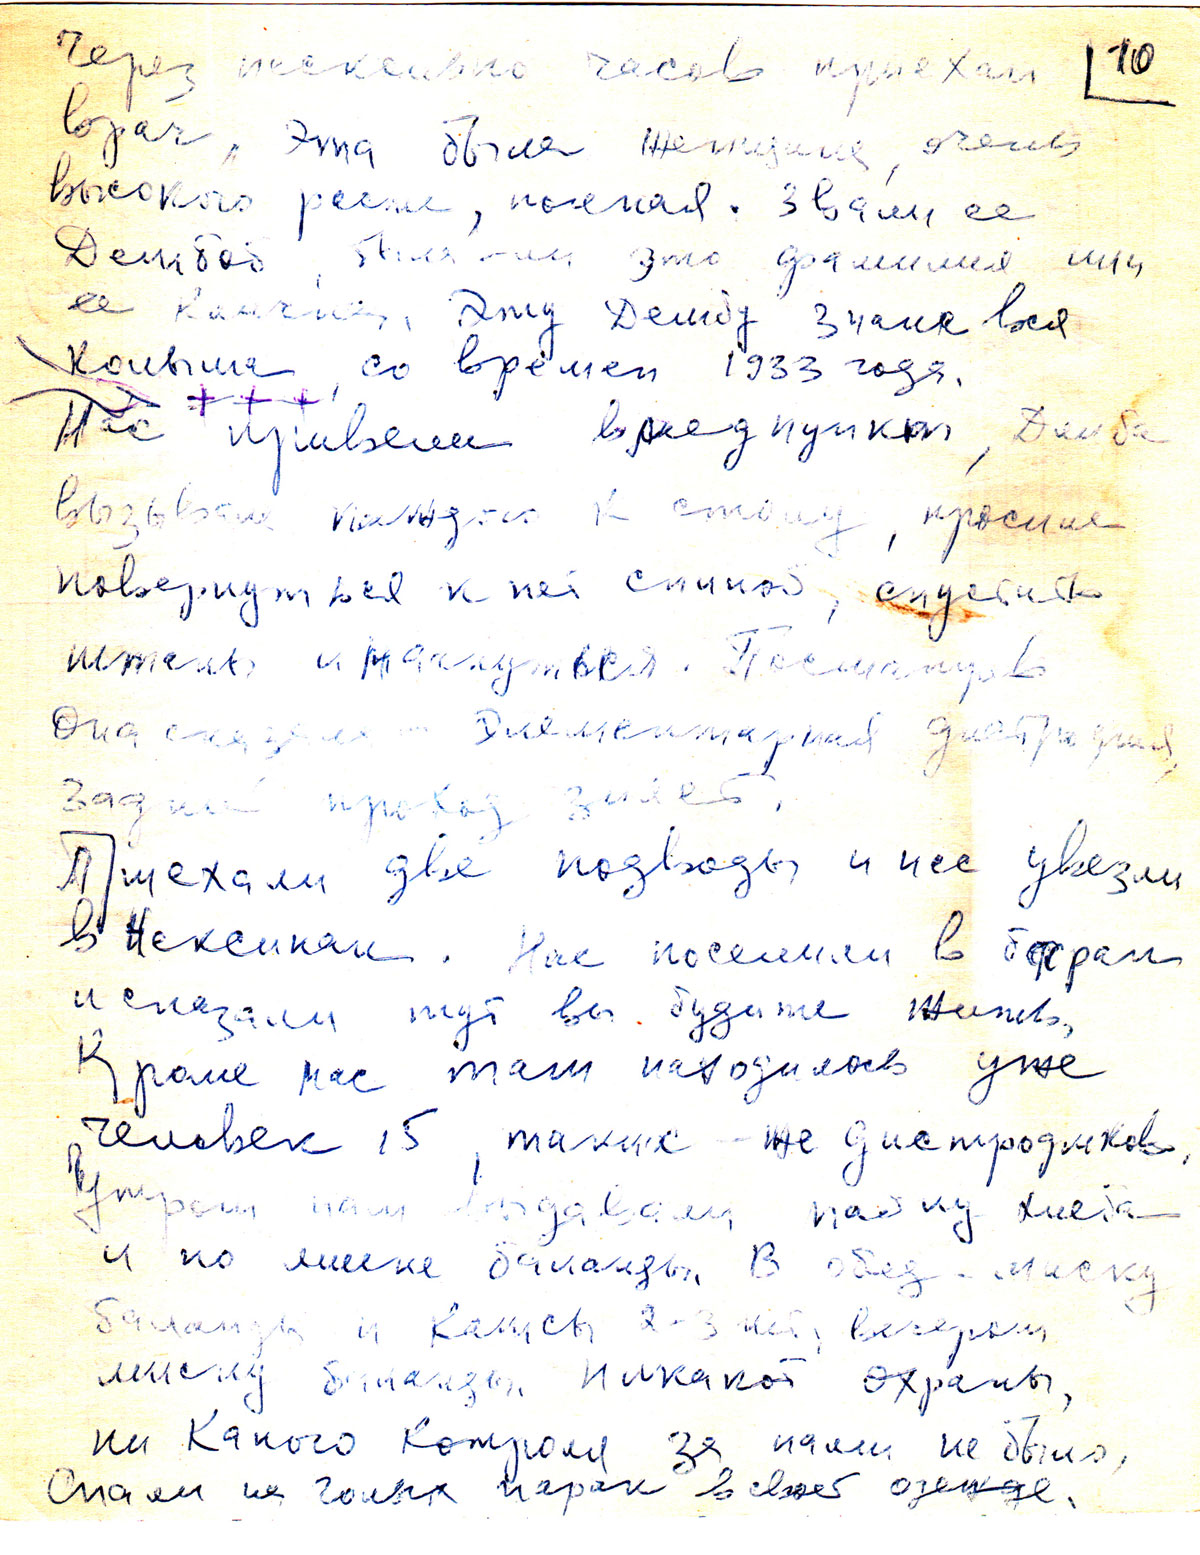 10
Через несколько часов приехал
врач, Эта была женщина, очень
высокого роста, полная. Звали ее
Дембой, была-ли это фамилия или
ее кличка. Эту Дембу знала вся
Колыма, со времен 1933 года.
+ + +
Нас привели в медпункт, Демба
вызывала каждого к столу, просила
повернуться к ней спиной, спустить
штаны и нагнуться. Посмотрев
она сказала – Элементарная дистрофия,
задний проход зияет.
Приехали две подводы и нас увезли
в Нексикан. Нас поселили в барак
и сказали тут вы будите жить.
Кроме нас там находилось уже
человек 15, таких-же дистрофиков.
Утром нам выдавали пайку хлеба
и по миске баланды. В обед – миску
баланды и каши 2-3 вечером
миску баланды. Никакой охраны,
ни какого контроля за нами не было.
Спали на голых нарах в своей одежде.